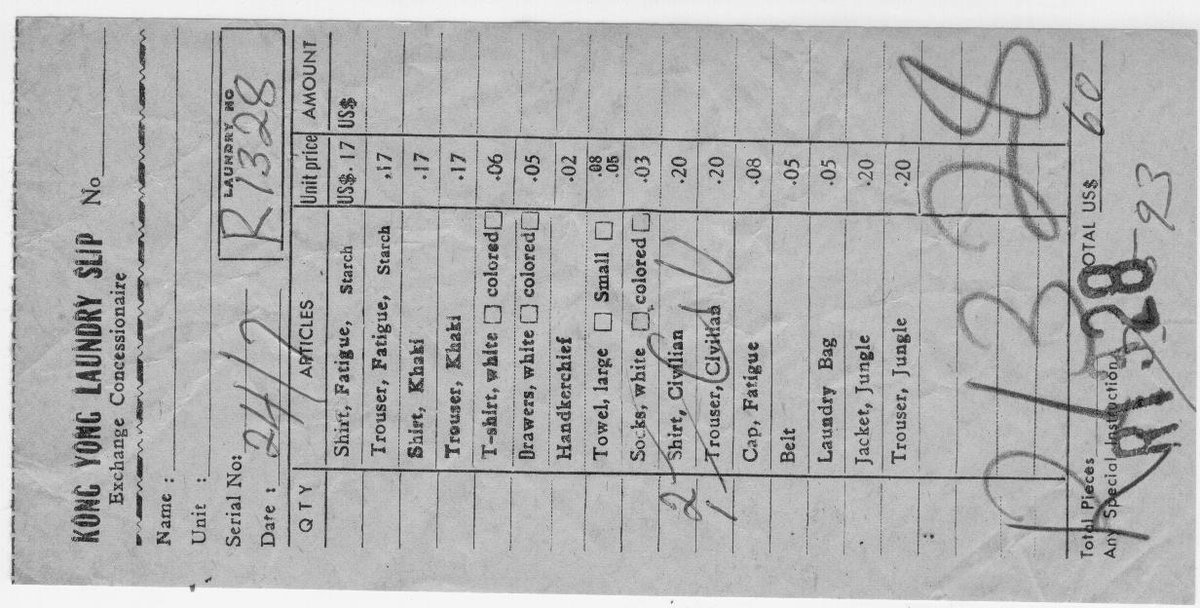 KONG YONG LAUNDRY SLIP No
Exchange Concessionaire
Name :
Unit :
Serial No:
LAUNDRY NO
R 1328
Date : 24/7
QTY ARTICLES Unit price AMOUNT
Shirt, Fatigue, Starch US$.17 US$
Trouser, Fatigue, Starch .17
Shirt, Khaki .17
Trouser, Khaki .17
T-shirt, white □ colored □ .06
Drawers, white □ colored □ .05
Handkerchief .02
Towel, large □ Small □ .08 .05
Socks, white □ colored □ .03
2 Shirt, Civilian .20
1 Trouser, Civilian .20
Cap, Fatigue .08
Belt .05
Laundry Bag .05
Jacket, Jungle .20
Trouser, Jungle .20
:
R 1328
Total Pieces TOTAL US$ 60
Any Special Instruction
R1328
93